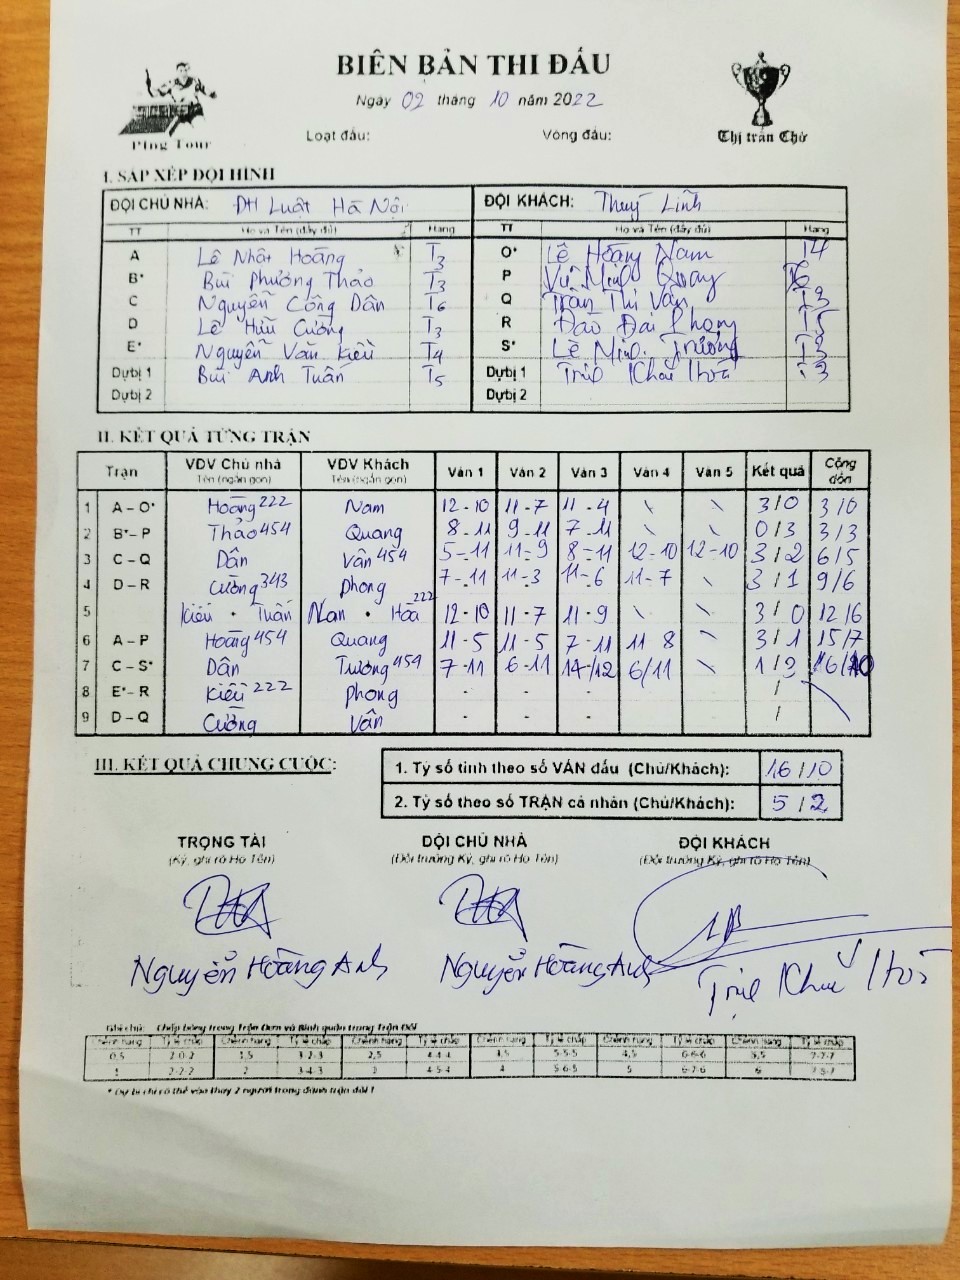 BIÊN BẢN THI ĐẤU
Ngày 02 tháng 10 năm 2022
Ping Tour
Loạt đấu: Vòng đấu:
Thị trấn Chờ
I. SẮP XẾP ĐỘI HÌNH
ĐỘI CHỦ NHÀ: ĐH Luật Hà Nội ĐỘI KHÁCH: Thuỳ Linh
TT Họ và Tên (đầy đủ) Hạng TT Họ và Tên (đầy đủ) Hạng
A Lê Nhật Hoàng T3 O* Lê Hoàng Nam T4
B* Bùi Phương Thảo T3 P Vũ Minh Quang
C Nguyễn Công Dân T6 Q Trần Thị Vân T3
D Lê Hữu Cường T3 R Đào Đại Phong T5
E* Nguyễn Văn Kiều T4 S* Lê Minh Trưởng T3
Dự bị 1 Bùi Anh Tuấn T5 Dự bị 1 Khắc Hoà T3
Dự bị 2 Dự bị 2
II. KẾT QUẢ TỪNG TRẬN
Trận VDV Chủ nhà Tên (ngắn gọn) VDV Khách Tên (ngắn gọn) Ván 1 Ván 2 Ván 3 Ván 4 Ván 5 Kết quả Cộng dồn
1 A - O* Hoàng 222 Nam 12-10 11-7 11-4 \ \ 3/0 3/0
2 B* - P Thảo 454 Quang 8-11 9-11 7-11 \ \ 0/3 3/3
3 C - Q Dân Vân 454 5-11 11-9 8-11 12-10 12-10 3/2 6/5
4 D - R Cường 343 Phong 7-11 11-3 11-6 11-7 \ 3/1 9/6
5 Kiều • Tuấn Nam • Hòa 222 12-10 11-7 11-9 \ \ 3/0 12/6
6 A - P Hoàng 454 Quang 11-5 11-5 7-11 11 8 \ 3/1 15/7
7 C - S* Dân Trưởng 454 7-11 6-11 14-/12 6/11 \ 1/3 16/10
8 E* - R Kiều 222 Phong - - - /
9 D - Q Cường Vân - - - /
III. KẾT QUẢ CHUNG CUỘC:
1. Tỷ số tính theo số VÁN đấu (Chủ/Khách): 16/10
2. Tỷ số theo số TRẬN cá nhân (Chủ/Khách): 5/2
TRỌNG TÀI ĐỘI CHỦ NHÀ ĐỘI KHÁCH
(Ký, ghi rõ Họ Tên) (Đội trưởng Ký, ghi rõ Họ Tên) (Đội trưởng Ký, ghi rõ Họ Tên)
Nguyễn Hoàng Anh Nguyễn Hoàng Anh Khắc Hoà
Ghi chú: Chấp bóng trong Trận Đơn và Bình quân trong Trận Đôi
Chênh hạng Tỷ lệ chấp Chênh hạng Tỷ lệ chấp Chênh hạng Tỷ lệ chấp Chênh hạng Tỷ lệ chấp Chênh hạng Tỷ lệ chấp Chênh hạng Tỷ lệ chấp
0,5 2-0-2 1,5 3-2-3 2,5 4-4-4 3,5 5-5-5 4,5 6-6-6 5,5 7-7-7
1 2-2-2 2 3-4-3 3 4-5-4 4 5-6-5 5 6-7-6 6 7-8-7
* Dự bị chỉ có thể vào thay 2 người trong đánh trận đôi !